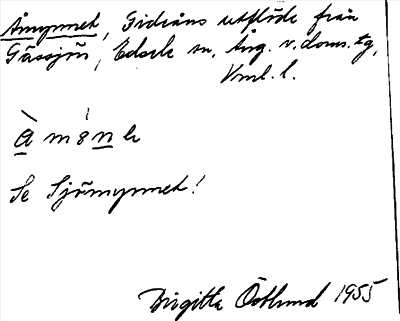 Åmynnet, Gideåns utflöde från
Gässjön, Edsele sn, Ång. v. doms. tg,
Vml. l.
Se Sjömynnet!
Birgitta Östlund 1955